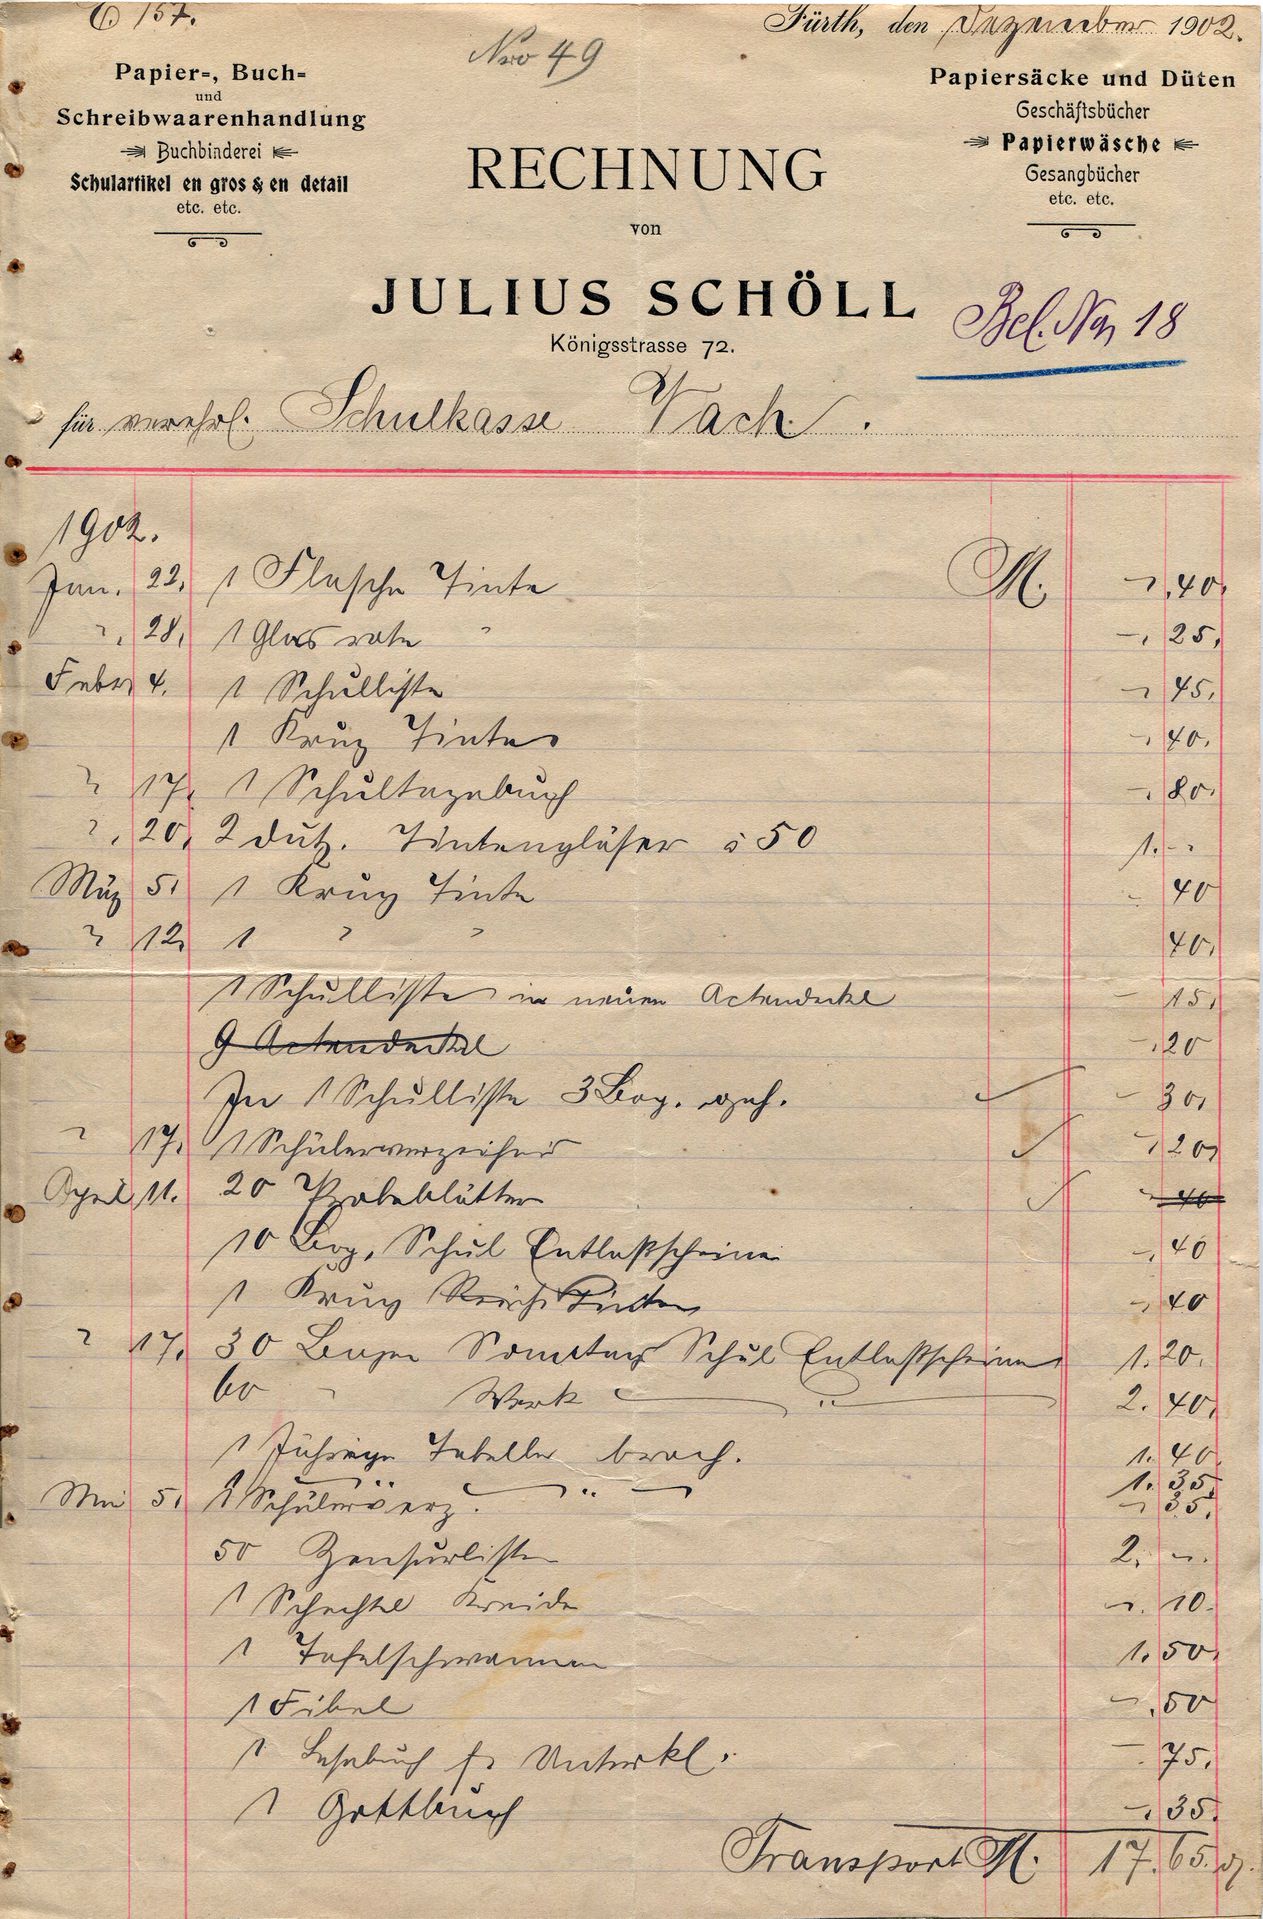 C. 157.
Nro 49
Fürth, den Dezember 1902.
Papier-, Buch-
und
Schreibwaarenhandlung
Buchbinderei
Schulartikel en gros & en detail
etc. etc.
RECHNUNG
von
JULIUS SCHÖLL
Königsstrasse 72.
Papiersäcke und Düten
Geschäftsbücher
Papierwäsche
Gesangbücher
etc. etc.
Bel. No 18
für verehrl. Schulkasse Vach.
1902.
Jan. 22. 1 Flasche Tinte M. -.40.
". 28. 1 Glas rote " -. 25.
Febr 4. 1 Schulliste - 45.
1 Krug Tinte -. 40.
" 17. 1 Schultagebuch -. 80.
". 20. 2 dutz. Tintengläser à 50 1. -.
März 5. 1 Krug Tinte - 40
" 12. 1 " " 40.
1 Schulliste in neuen Actendeckel - 15.
9 Actendeckel -. 20
In 1 Schulliste 3 Bog. geh. - 30.
" 17. 1 Schülerverzeichnis -. 20.
April 11. 20 Probeblätter - 40
10 Bog. Schul Entlaßscheine -. 40
1 Krug Tinte -. 40
" 17. 30 Bogen Sonntag Schul Entlaßscheine 1. 20.
60 " Werk " 2. 40.
1 Jährige Tabelle broch. 1. 40.
1. 35.
Mai 5. 1 Schülerverz. " - 35.
50 Zensurlisten 2. -.
1 Schachtel Kreide -. 10.
1 Tafelschwamm 1. 50.
1 Fibel -. 50
1 Lesebuch f. Unterkl. -. 75.
1 -. 35.
Transport M. 17. 65.